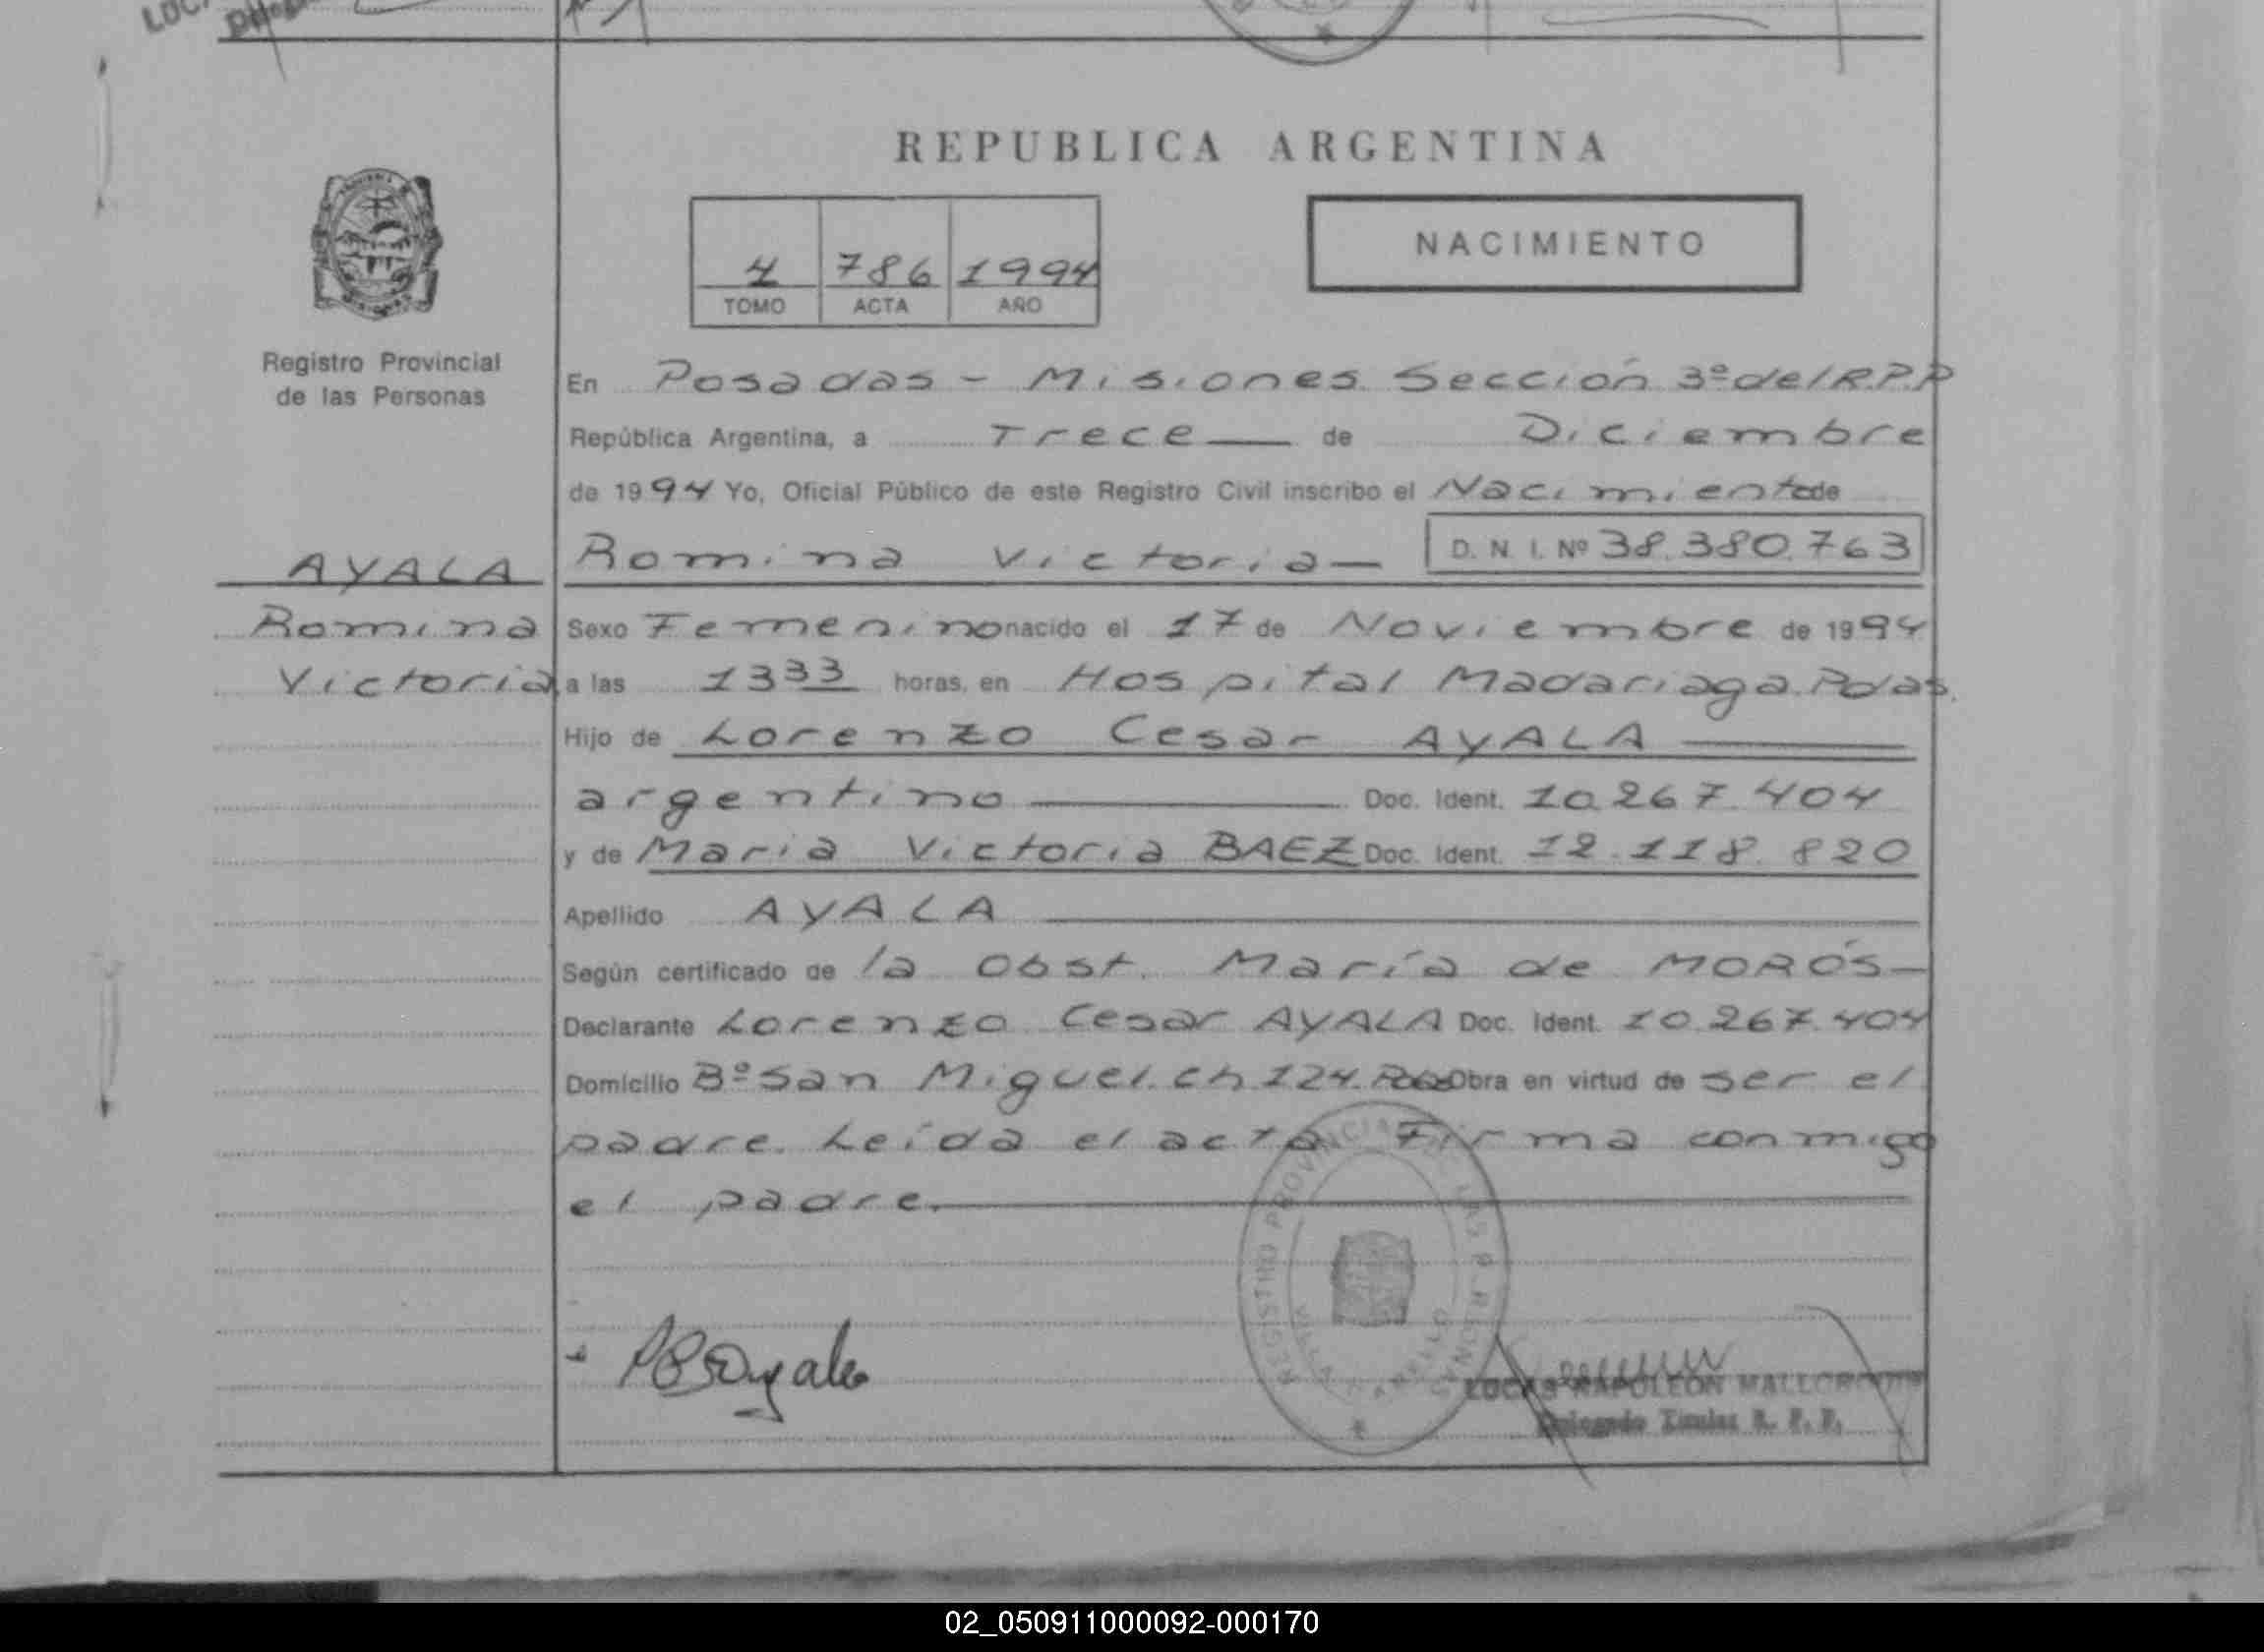 REPUBLICA ARGENTINA
4 786 1994
TOMO ACTA AÑO
NACIMIENTO
Registro Provincial
de las Personas
En Posadas - Misiones Sección 3º del R.P.P
República Argentina, a Trece de Diciembre
de 1994 Yo, Oficial Público de este Registro Civil inscribo el Nacimiento de
AYALA
Romina Victoria
Romina Victoria D. N. I. Nº 38.380.763
Sexo Femenino nacido el 17 de Noviembre de 1994
a las 13 33 horas, en Hospital Madariaga Pdas.
Hijo de Lorenzo Cesar AYALA
argentino Doc. Ident. 10.267.404
y de Maria Victoria BAEZ Doc. Ident. 12.118.820
Apellido AYALA
Según certificado de la Obst. María de MORÓS
Declarante Lorenzo Cesar AYALA Doc. Ident. 10.267.404
Domicilio Bº San Miguel. ch 124. Pdas Obra en virtud de ser el
padre. Leída el acta Firma conmigo
el padre.
REGISTRO PROVINCIAL DE LAS PERSONAS
LUCAS NAPOLEON
Delegado Titular R. P. P.
02_050911000092-000170